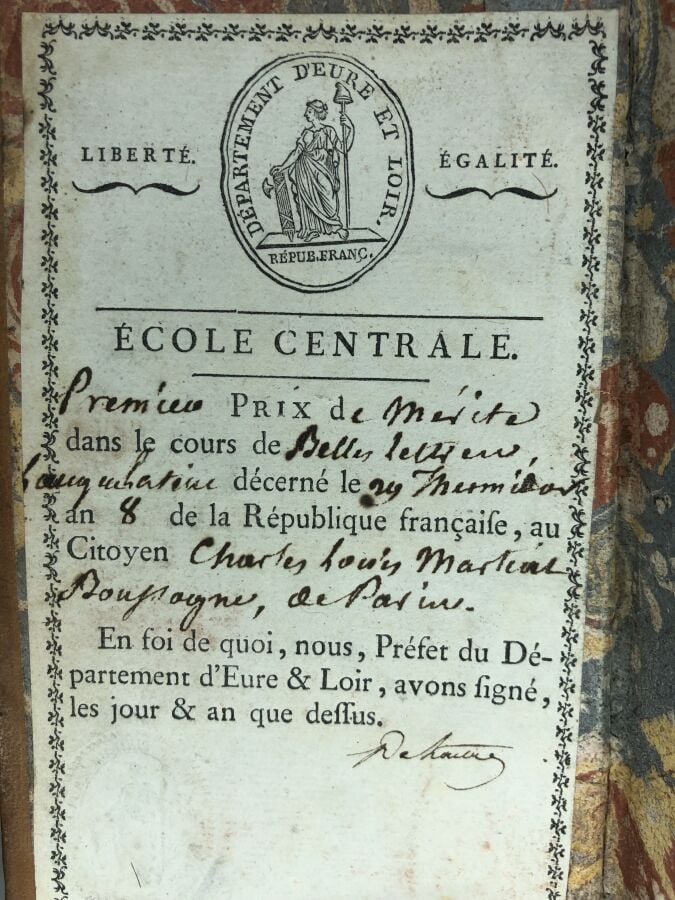 DÉPARTEMENT D'EURE ET LOIR.
LIBERTÉ.
ÉGALITÉ.
RÉPUB. FRANÇ.
ÉCOLE CENTRALE.
Premier PRIX de Mérite
dans le cours de Belles lettres,
Langue latine décerné le 29 Thermidor
an 8 de la République françaiſe, au
Citoyen Charles Louis Martial
Boussagne, de Paris.
En foi de quoi, nous, Préfet du Dé-
partement d'Eure & Loir, avons ſigné,
les jour & an que deſſus.